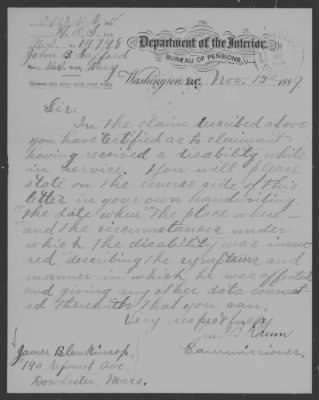 No. 14748
John S. Safford
U.S. Navy
Return this letter with your reply.
Department of the Interior,
BUREAU OF PENSIONS,
Washington, D.C., Nov. 15, 1889.
Sir:
In the claim described above
you have testified as to claimant
having received a disability while
in service. You will please
state on the reverse side of this
letter in your own handwriting
the date when, the place where, —
and the circumstances under
which the disability was incur-
red describing the symptoms and
manner in which he was affected
and giving any other data connect-
ed therewith that you can.
Very respectfully
Raum
Commissioner.
James Blenkinsop,
190 Neponset Ave.
Dorchester, Mass.